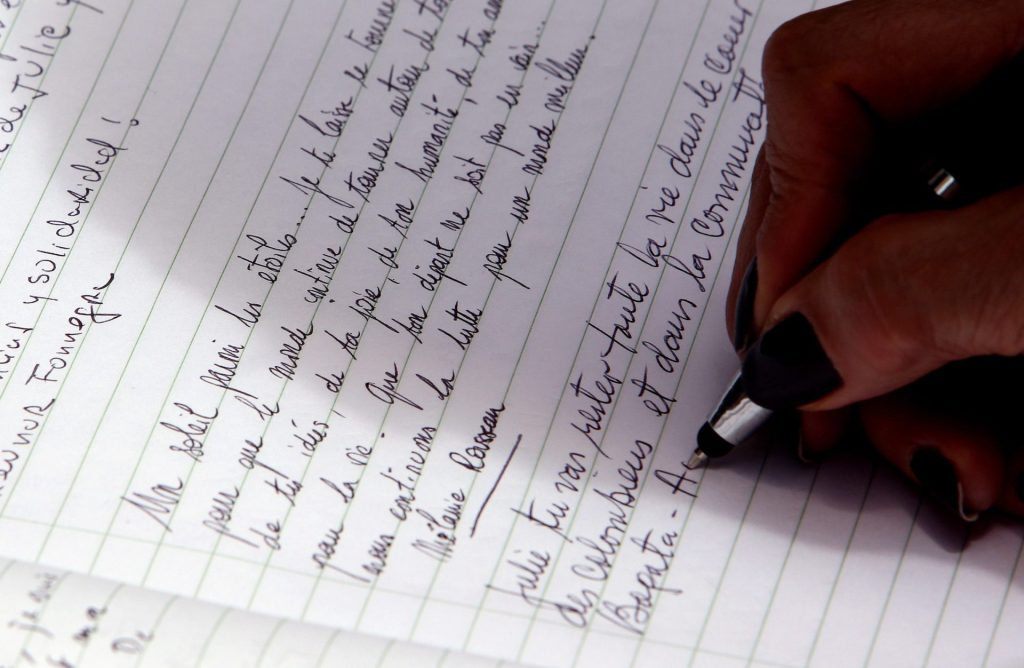 de Julie y
y solidaridad !
Fonnegra
Un soleil parmi les étoiles.... Je te laisse le
pour que le monde continue de tourner autour de
de tes idées, de ta joie, de ton humanité, de ton
pour la vie. Que ton départ ne soit pas en vain...
nous continuerons la lutte pour un monde meilleur.
Mélanie
Julie tu vas rester toute la vie dans le coeur
des colombiens et dans la
Bogota - A
je suis
ma
De